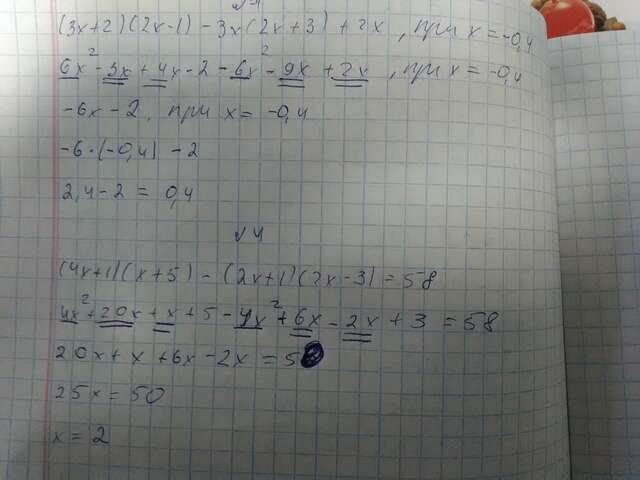 (3x+2)(2x-1) - 3x(2x+3) + 2x, при x = -0,4
6x² - 3x + 4x - 2 - 6x² - 9x + 2x, при x = -0,4
-6x - 2, при x = -0,4
-6·(-0,4) - 2
2,4 - 2 = 0,4
№4
(4x+1)(x+5) - (2x+1)(2x-3) = 58
4x² + 20x + x + 5 - 4x² + 6x - 2x + 3 = 58
20x + x + 6x - 2x = 5
25x = 50
x = 2